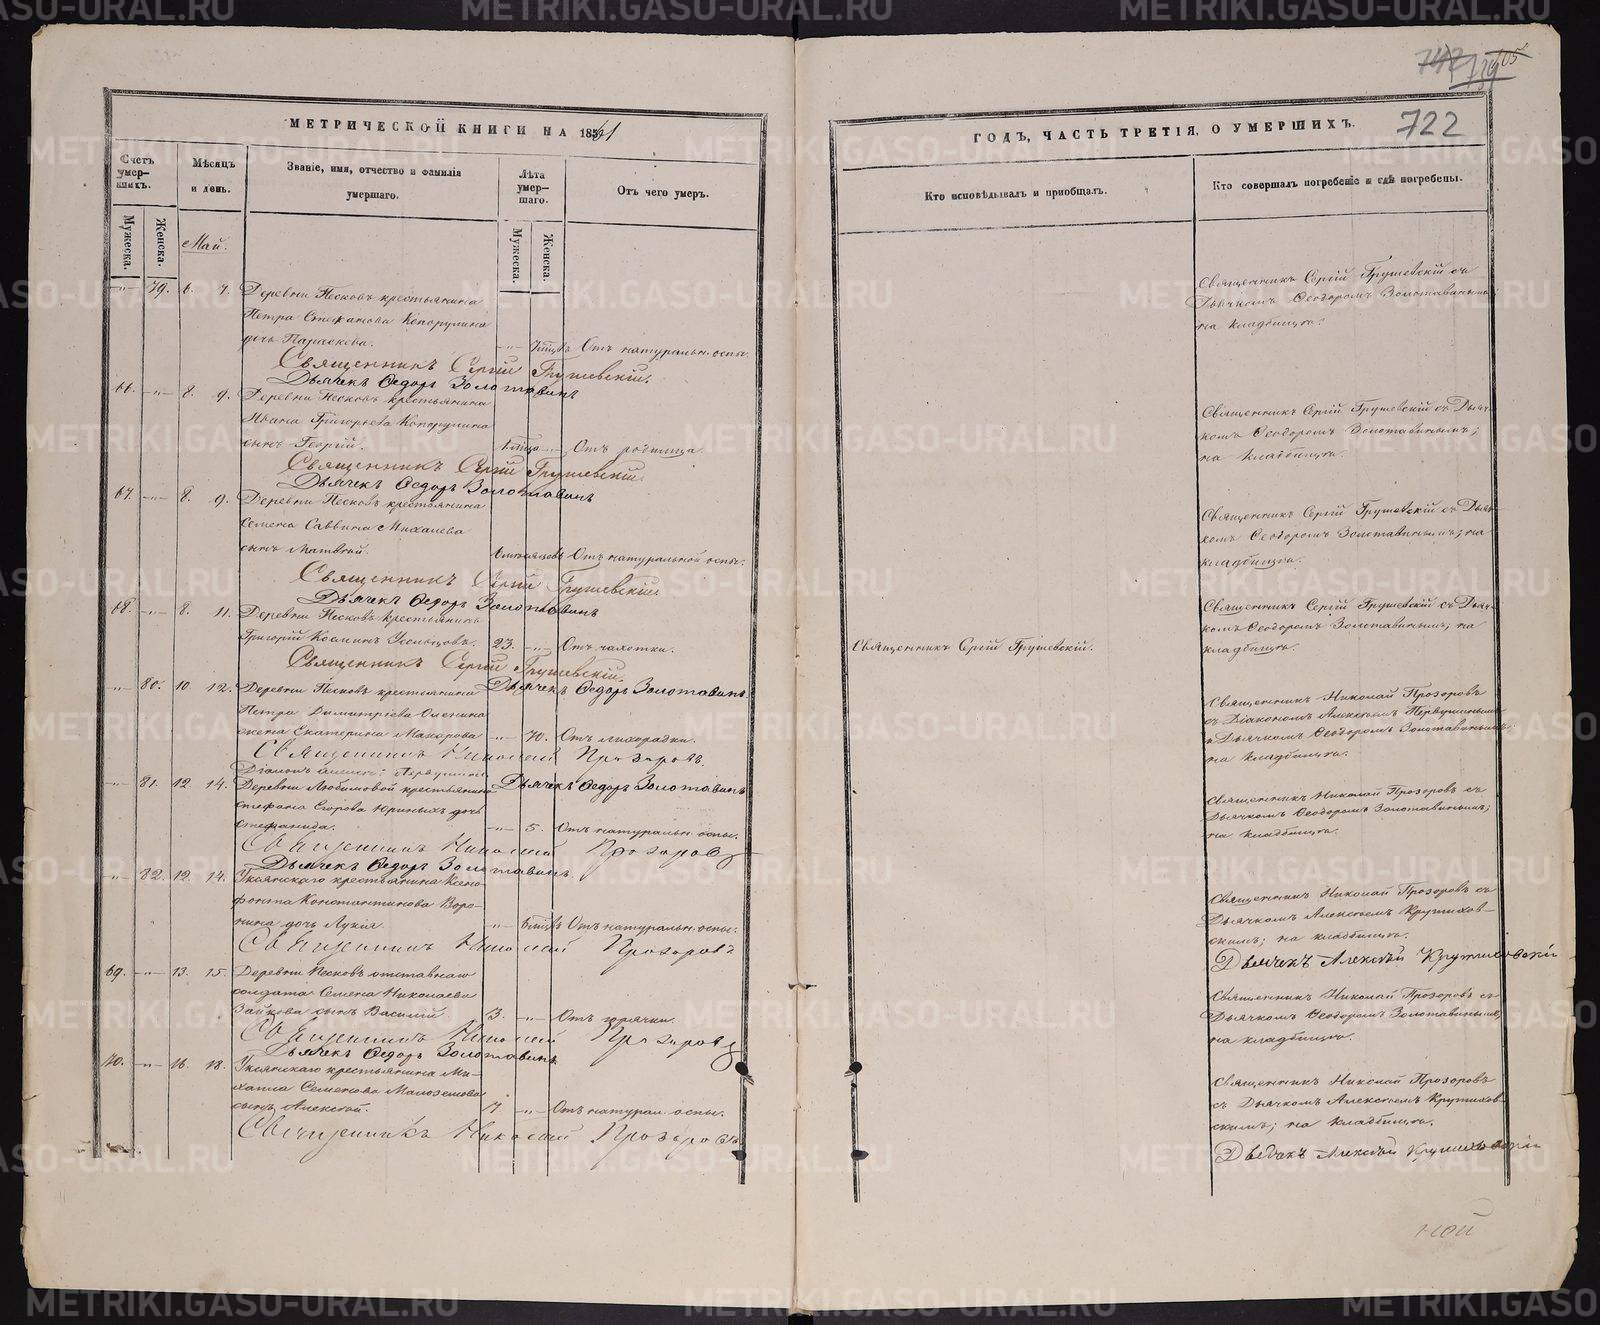 742 739 105
722
МЕТРИЧЕСКОЙ КНИГИ НА 1861
ГОДЪ, ЧАСТЬ ТРЕТІЯ, О УМЕРШИХЪ.
Счетъ умер-шихъ.
Мѣсяцъ и день.
Званіе, имя, отчество и фамилія умершаго.
Лѣта умер-шаго.
Отъ чего умеръ.
Кто исповѣдывалъ и пріобщалъ.
Кто совершалъ погребеніе и гдѣ погребены.
Мужеска.
Женска.
Мужеска.
Женска.
Май.
-"- 79. 6. 7. Деревни Песковъ крестьянина
Петра Стефанова Копорулина
дочь Параскева. -"- Отъ натуральн. оспы.
Священникъ Сергій Грушевскій.
Дьячекъ Ѳедоръ Золотавинъ
Священникъ Сергій Грушевскій съ
Дьячкомъ Ѳеодоромъ Золотавинымъ;
на кладбищѣ.
66. -"- 8. 9. Деревни Песковъ крестьянина
Ивана Григорьева Копорулина
сынъ Георгій. -"- Отъ родимца.
Священникъ Сергій Грушевскій
Дьячекъ Ѳедоръ Золотавинъ
Священникъ Сергій Грушевскій съ Дьяч-
комъ Ѳеодоромъ Золотавинымъ;
на кладбищѣ.
67. -"- 8. 9. Деревни Песковъ крестьянина
Семена Саввина Михалева
сынъ Матвѣй. Отъ натуральной оспы.
Священникъ Сергій Грушевскій
Дьячекъ Ѳедоръ Золотавинъ
Священникъ Сергій Грушевскій съ Дьяч-
комъ Ѳеодоромъ Золотавинымъ; на
кладбищѣ.
68. -"- 8. 11. Деревни Песковъ крестьянинъ
Григорій Косминъ Усольцовъ. 23. -"- Отъ чахотки.
Священникъ Сергій Грушевскій.
Дьячекъ Ѳедоръ Золотавинъ
Священникъ Сергій Грушевскій.
Священникъ Сергій Грушевскій съ Дьяч-
комъ Ѳеодоромъ Золотавинымъ; на
кладбищѣ.
-"- 80. 10. 12. Деревни Песковъ крестьянина
Петра Димитріева Оленина
жена Екатерина Макарова -"- 70. Отъ лихорадки.
Священникъ Николай Прозоровъ.
Діаконъ Алексѣй Первушинъ
Дьячекъ Ѳедоръ Золотавинъ
Священникъ Николай Прозоровъ
съ Діакономъ Алексѣемъ Первушинымъ
и Дьячкомъ Ѳеодоромъ Золотавинымъ;
на кладбищѣ.
-"- 81. 12. 14. Деревни Любимовой крестьянина
Стефана Егорова Юриныхъ дочь
Стефанида. -"- 5. Отъ натуральн. оспы.
Священникъ Николай Прозоровъ
Дьячекъ Ѳедоръ Золотавинъ.
Священникъ Николай Прозоровъ съ
Дьячкомъ Ѳеодоромъ Золотавинымъ;
на кладбищѣ.
-"- 82. 12. 14. Уксянскаго крестьянина Ксено-
фонта Константинова Воро-
нина дочь Лукія. -"- Отъ натуральн. оспы.
Священникъ Николай Прозоровъ
Священникъ Николай Прозоровъ съ
Дьячкомъ Алексѣемъ Крутихов-
скимъ; на кладбищѣ.
Дьячекъ Алексѣй Крутиховскій
69. -"- 13. 15. Деревни Песковъ отставнаго
солдата Семена Николаева
Зайкова сынъ Василій. 3. -"- Отъ горячки.
Священникъ Николай Прозоровъ
Дьячекъ Ѳедоръ Золотавинъ
Священникъ Николай Прозоровъ съ
Дьячкомъ Ѳеодоромъ Золотавинымъ;
на кладбищѣ.
70. -"- 16. 18. Уксянскаго крестьянина Ми-
хаила Семенова Малоземова
сынъ Алексѣй. 7. -"- Отъ натурал. оспы.
Священникъ Николай Прозоровъ
Священникъ Николай Прозоровъ
съ Дьячкомъ Алексѣемъ Крутихов-
скимъ; на кладбищѣ.
Дьячекъ Алексѣй Крутиховскій
ной
METRIKI.GASO-URAL.RU